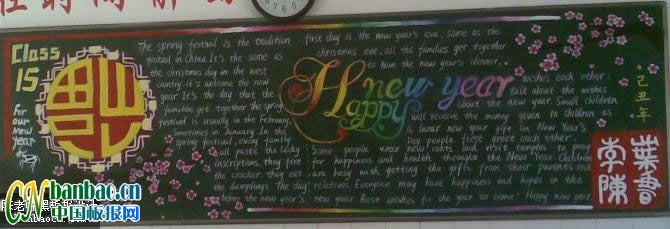 Class
15
for
our
new
year
福
The spring festival is the tradition
festival in China. It's the same as
the christmas day in the west
country. it's welcome the new
year. It's the day that the
families get together. The spring
festival is usually in the February,
Sometimes in January. In the
spring festival, every family
all paste the lucky
inscriptions, they fire
the cracker. they eat
the dumplings. The day
before the new year's
first day is the new year's eve, same as the
christmas eve. all the families get together
to have the new year's dinner.
Happy
new year
wishes each other.
talk about the wishes
about the new year. Small children
will receive the money given to children as
a lunar new year gift. On New Year's
Day people first greet each other
Some people wear new coats and visit temples to pray
for happiness and health. the New Year Children
are busy with getting the gifts from their parents and
relatives. Everyone may have happiness and hopes in the
new year. Best wishes for the year to come! Happy new year
己丑年
葉曹
李陳
CN banbao.cn
中国板报网